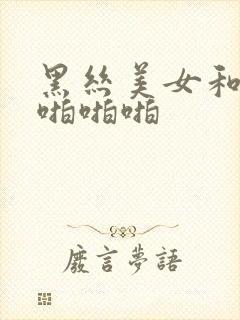 黑丝美女和
啪啪啪
废言梦語